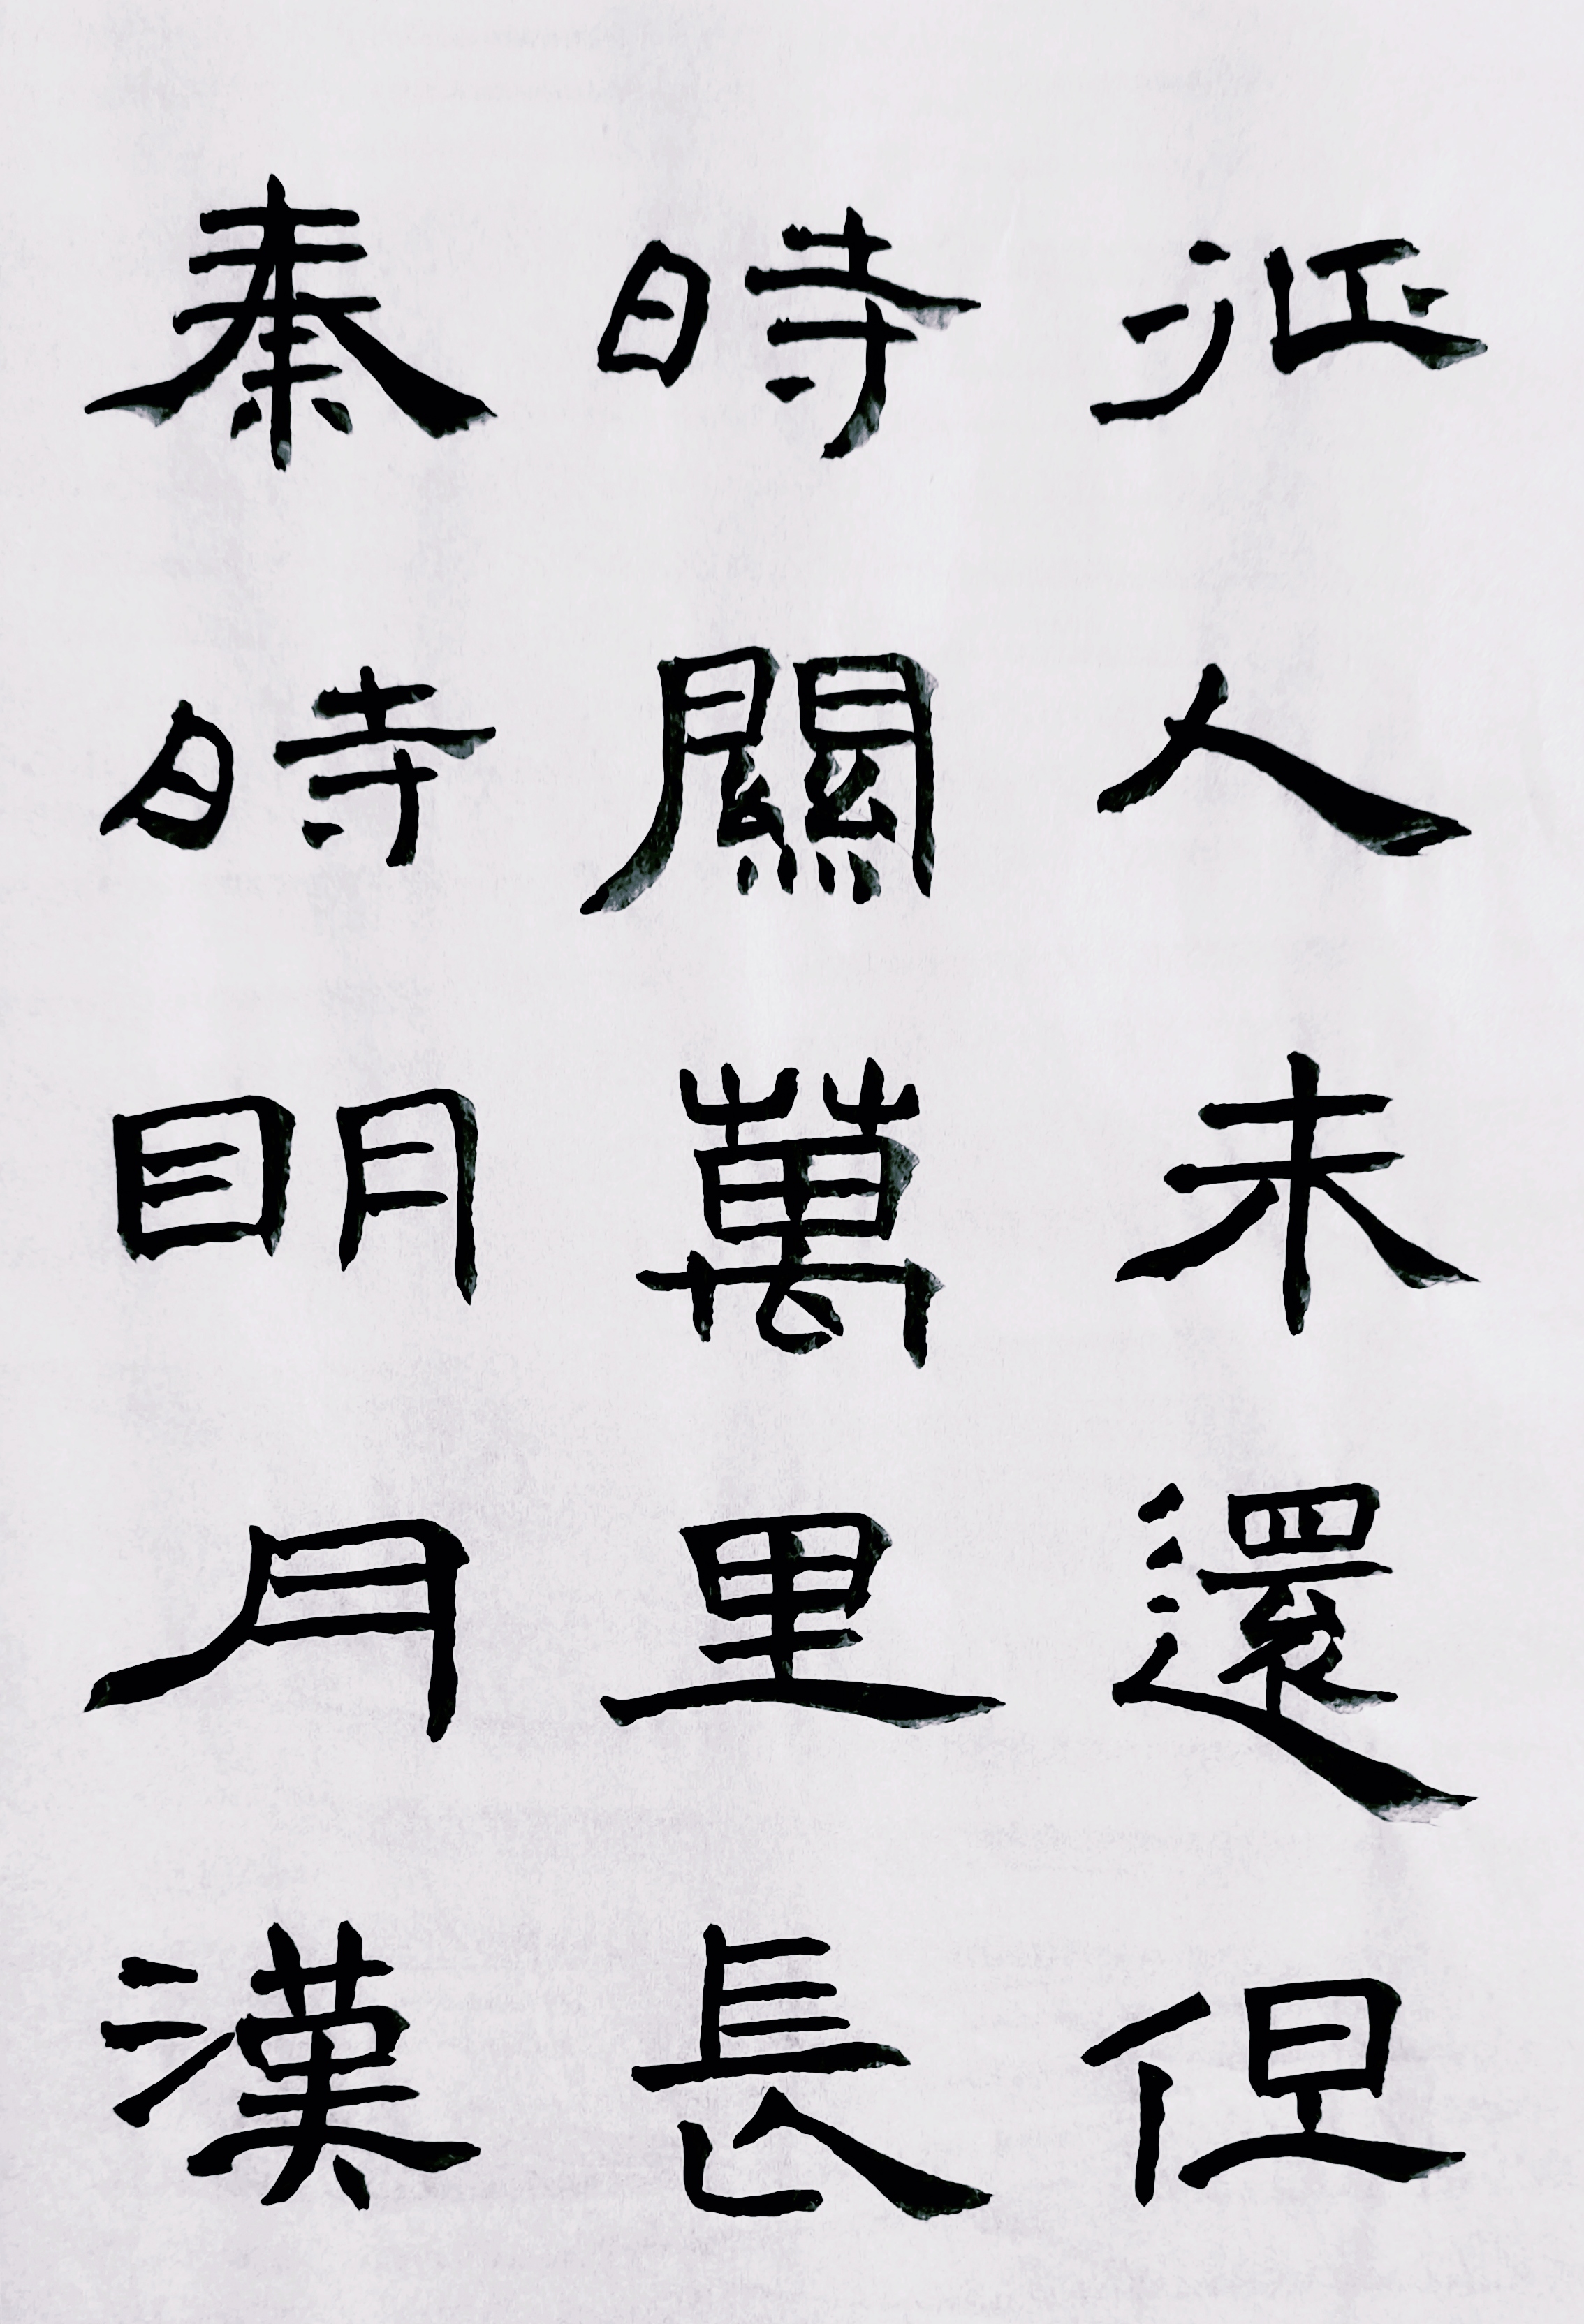 秦時明月漢
時關萬里長
征人未還但